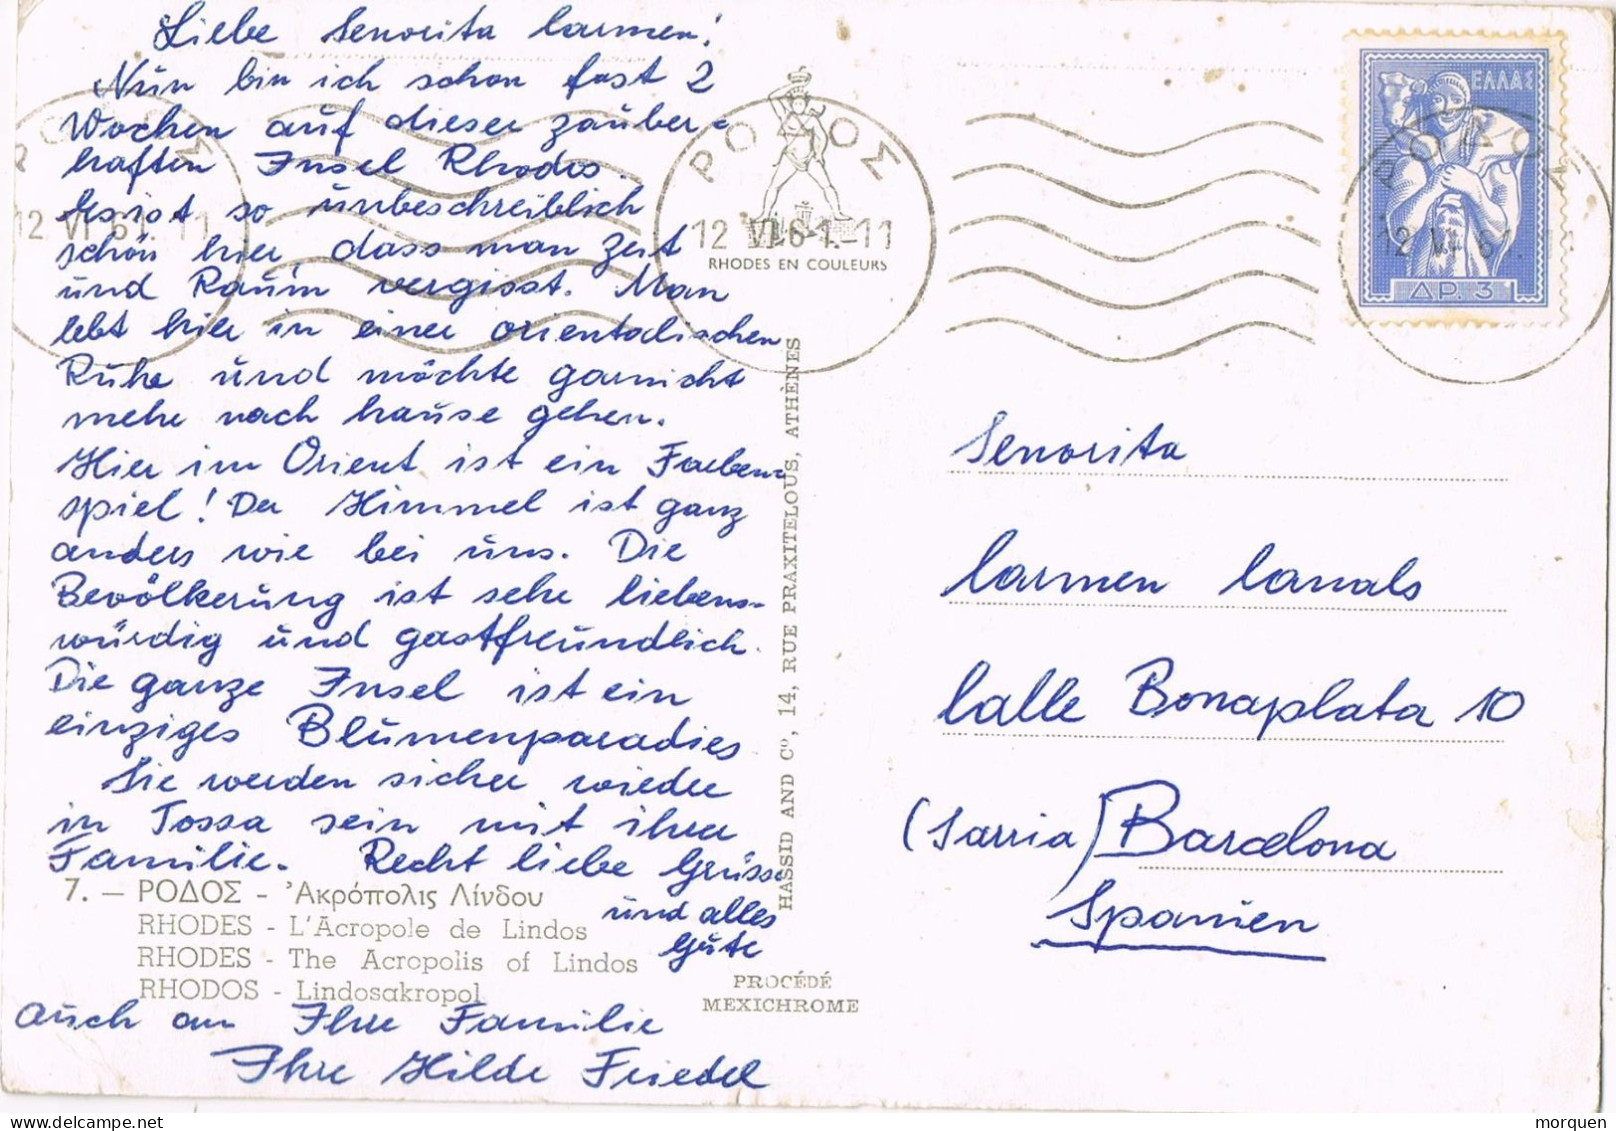 Liebe Senorita Carmen!
Nun bin ich schon fast 2
Wochen auf dieser zauber-
haften Insel Rhodos.
Es ist so unbeschreiblich
schön hier, dass man Zeit
und Raum vergisst. Man
lebt hier in einer orientalischen
Ruhe und möchte garnicht
mehr nach hause gehen.
Hier im Orient ist ein Farben-
spiel! Der Himmel ist ganz
anders wie bei uns. Die
Bevölkerung ist sehr liebens-
würdig und gastfreundlich.
Die ganze Insel ist ein
einziges Blumenparadies
Sie werden sicher wieder
in Tossa sein mit ihrer
Familie. Recht liebe Grüsse
und alles
Gute
auch an Ihre Familie
Ihre Hilde Friedel
7. — ΡΟΔΟΣ - Ἀκρόπολις Λίνδου
RHODES - L'Acropole de Lindos
RHODES - The Acropolis of Lindos
RHODOS - Lindosakropol
PROCÉDÉ
MEXICHROME
HASSID AND C°, 14, RUE PRAXITELOUS, ATHÈNES
ΡΟΔΟΣ
12 VI 61.-11
ΡΟΔΟΣ
12 VI.61.-11
RHODES EN COULEURS
ΕΛΛΑΣ
ΡΟΔΟΣ
12 VI 61.
ΔΡ. 3
Senorita
Carmen Canals
Calle Bonaplata 10
(Sarria) Barcelona
Spanien
morquen